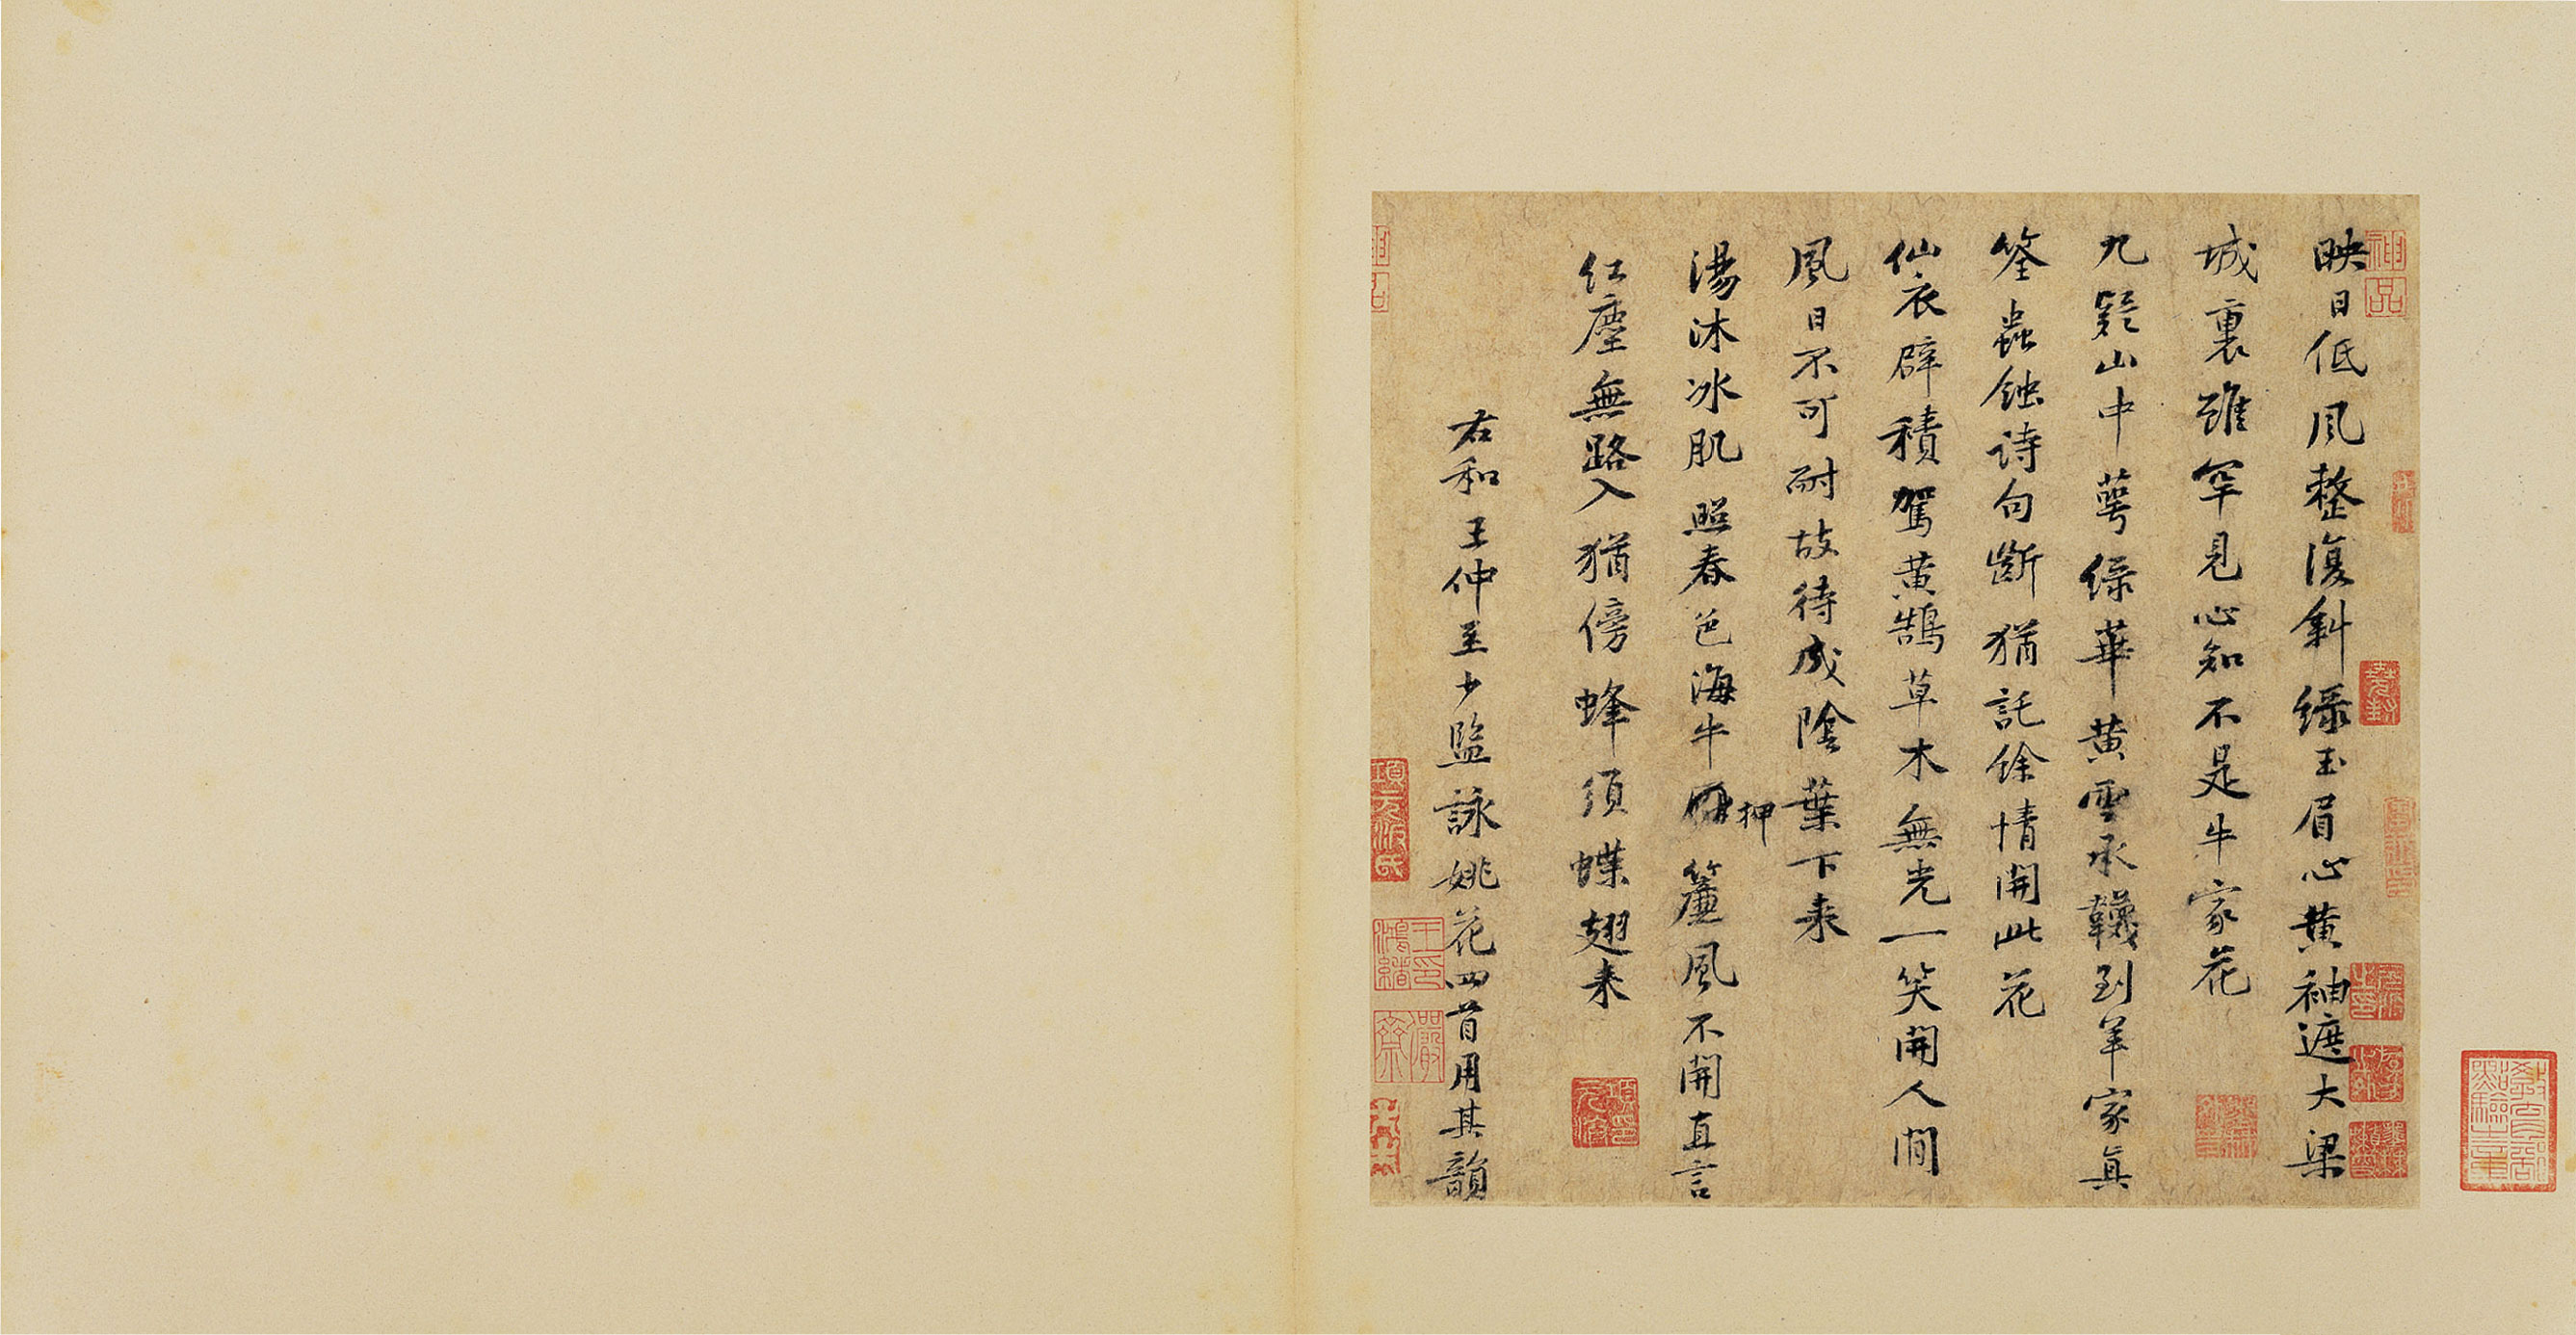 映日低風整復斜綠玉眉心黃袖遮大梁
城裏雖罕見心知不是牛家花
九疑山中萼綠華黃雲承韈到羊家真
筌蟲蝕詩句斷猶託餘情開此花
仙衣襞積駕黃鵠草木無光一笑開人間
風日不可耐故待成陰葉下來
湯沐冰肌照春色海牛押簾風不開直言
紅塵無路入猶傍蜂須蝶翅來
右和王仲至少監詠姚花四首用其韻
神品
項元汴氏
項元汴印